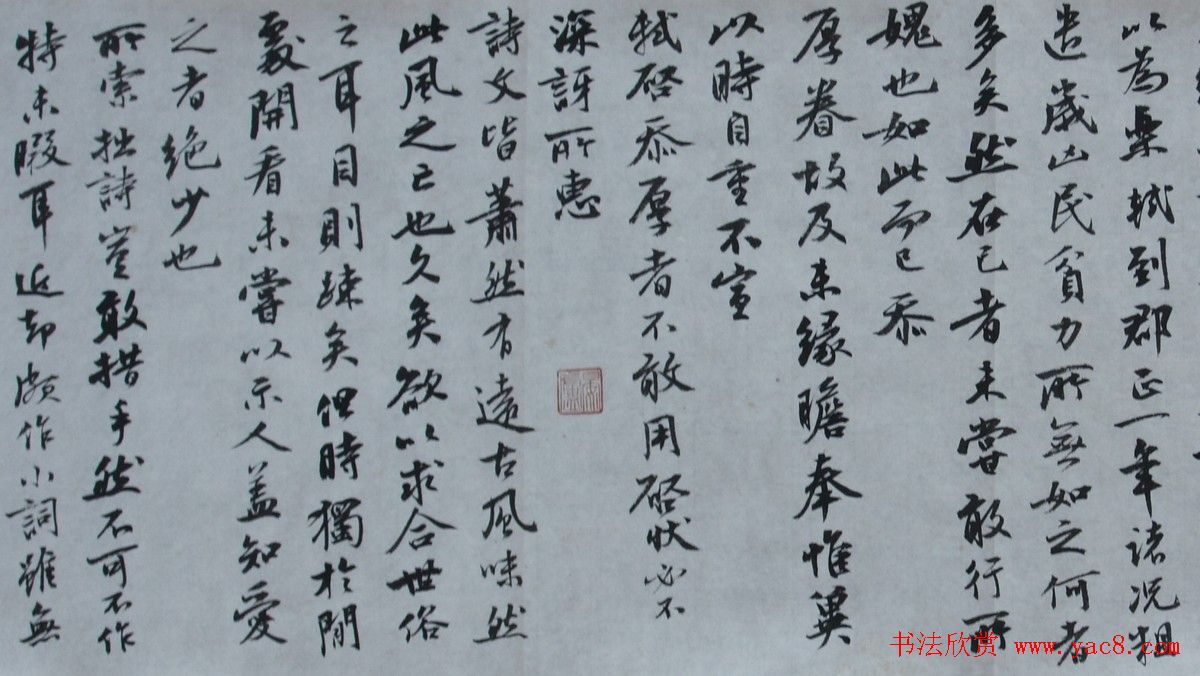 以為樂軾到郡正一年諸况粗
遣歲凶民貧力所無如之何者
多矣然在己者未嘗敢行所
媿也如此而已忝
厚眷故及未緣瞻奉惟冀
以時自重不宣
軾啓忝厚者不敢用啓狀必不
深訝所惠
詩文皆蕭然有遠古風味然
此風之亡也久矣欲以求合世俗
之耳目則疎矣但時獨於閒
處開看未嘗以示人盖知愛
之者絶少也
所索拙詩豈敢措手然不可不作
特未暇耳近却頗作小詞雖無
书法欣赏 www.yac8.com